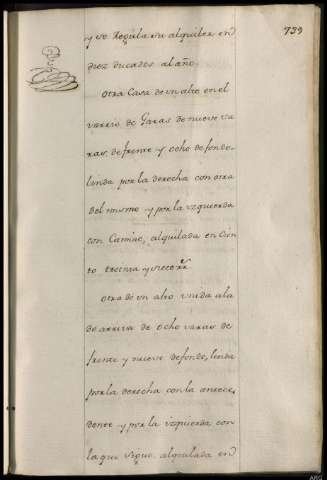 739
y se Regula su alquiler en
diez ducados al año
Otra Casa de un alto en el
varrio de Garas de nueve va
ras de frente y ocho de fondo,
linda por la derecha con otra
del mismo y por la izquierda
con Camino, alquilada en Cien
to treinta y siete rr.ˢ
Otra de un alto unida a la
de arriva de ocho varas de
frente y nueve de fondo, linda
por la derecha con la antece,
dente y por la izquierda con
la que sigue alquilada en